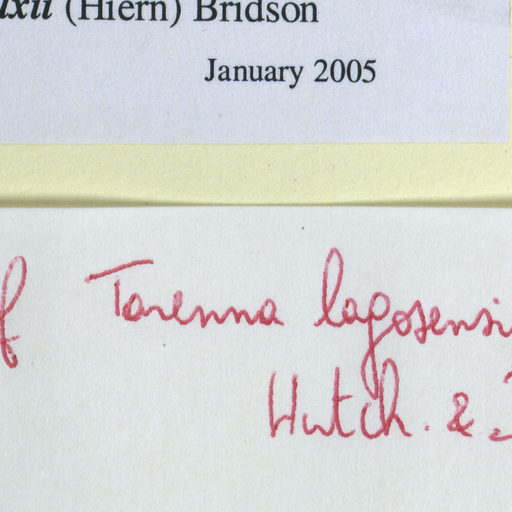 (Hiern) Bridson
January 2005
f Tarenna lagosensi
Hutch. &